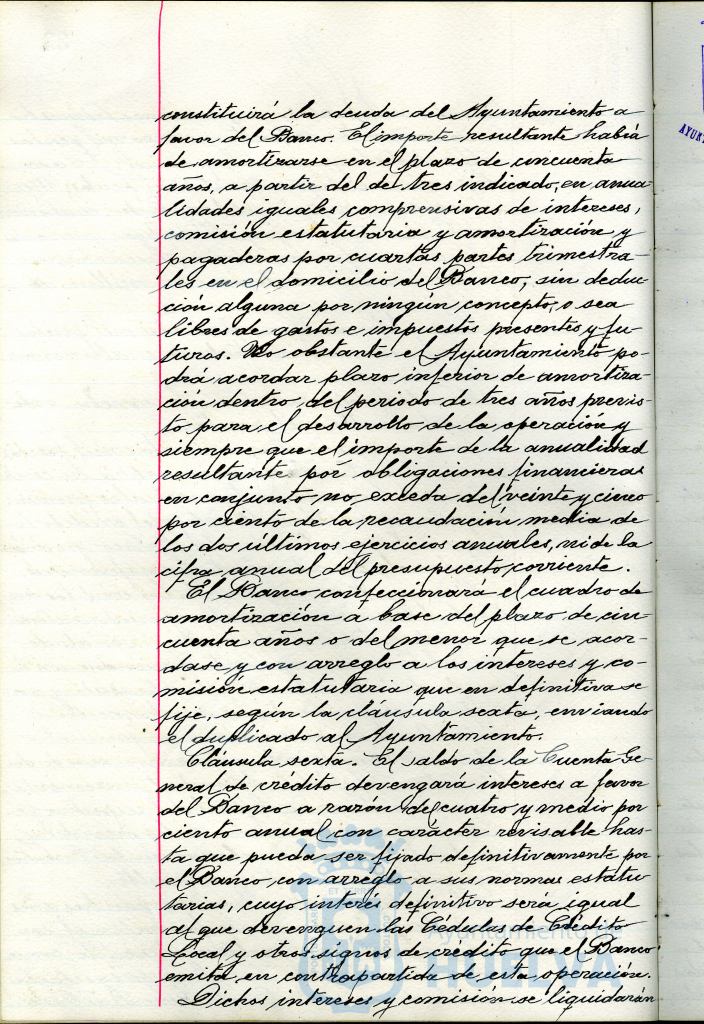 constituirá la deuda del Ayuntamiento a
favor del Banco. El importe resultante habrá
de amortizarse en el plazo de cincuenta
años, a partir del de tres indicado, en anua-
lidades iguales comprensivas de intereses,
comisión estatutaria y amortización y
pagaderas por cuartas partes trimestra-
les en el domicilio del Banco, sin deduc-
ción alguna por ningún concepto, o sea
libres de gastos e impuestos presentes y fu-
turos. No obstante el Ayuntamiento po-
drá acordar plazo inferior de amortiza-
ción dentro del periodo de tres años previs-
to para el desarrollo de la operación y
siempre que el importe de la anualidad
resultante por obligaciones financieras
en conjunto no exceda del veinte y cinco
por ciento de la recaudación media de
los dos últimos ejercicios anuales, ni de la
cifra anual del presupuesto corriente.
El Banco confeccionará el cuadro de
amortización a base del plazo de cin-
cuenta años o del menor que se acor-
dase y con arreglo a los intereses y co-
misión estatutaria que en definitiva se
fije, según la cláusula sexta, enviando
el duplicado al Ayuntamiento.
Cláusula sexta. El saldo de la Cuenta Ge-
neral de crédito devengará intereses a favor
del Banco a razón del cuatro y medio por
ciento anual con carácter revisable has-
ta que pueda ser fijado definitivamente por
el Banco con arreglo a sus normas estatu-
tarias, cuyo interés definitivo será igual
al que devenguen las Cédulas de Crédito
Local y otros signos de crédito que el Banco
emita en contrapartida de esta operación.
Dichos intereses y comisión se liquidarán
Ayuntamiento de
HUELVA